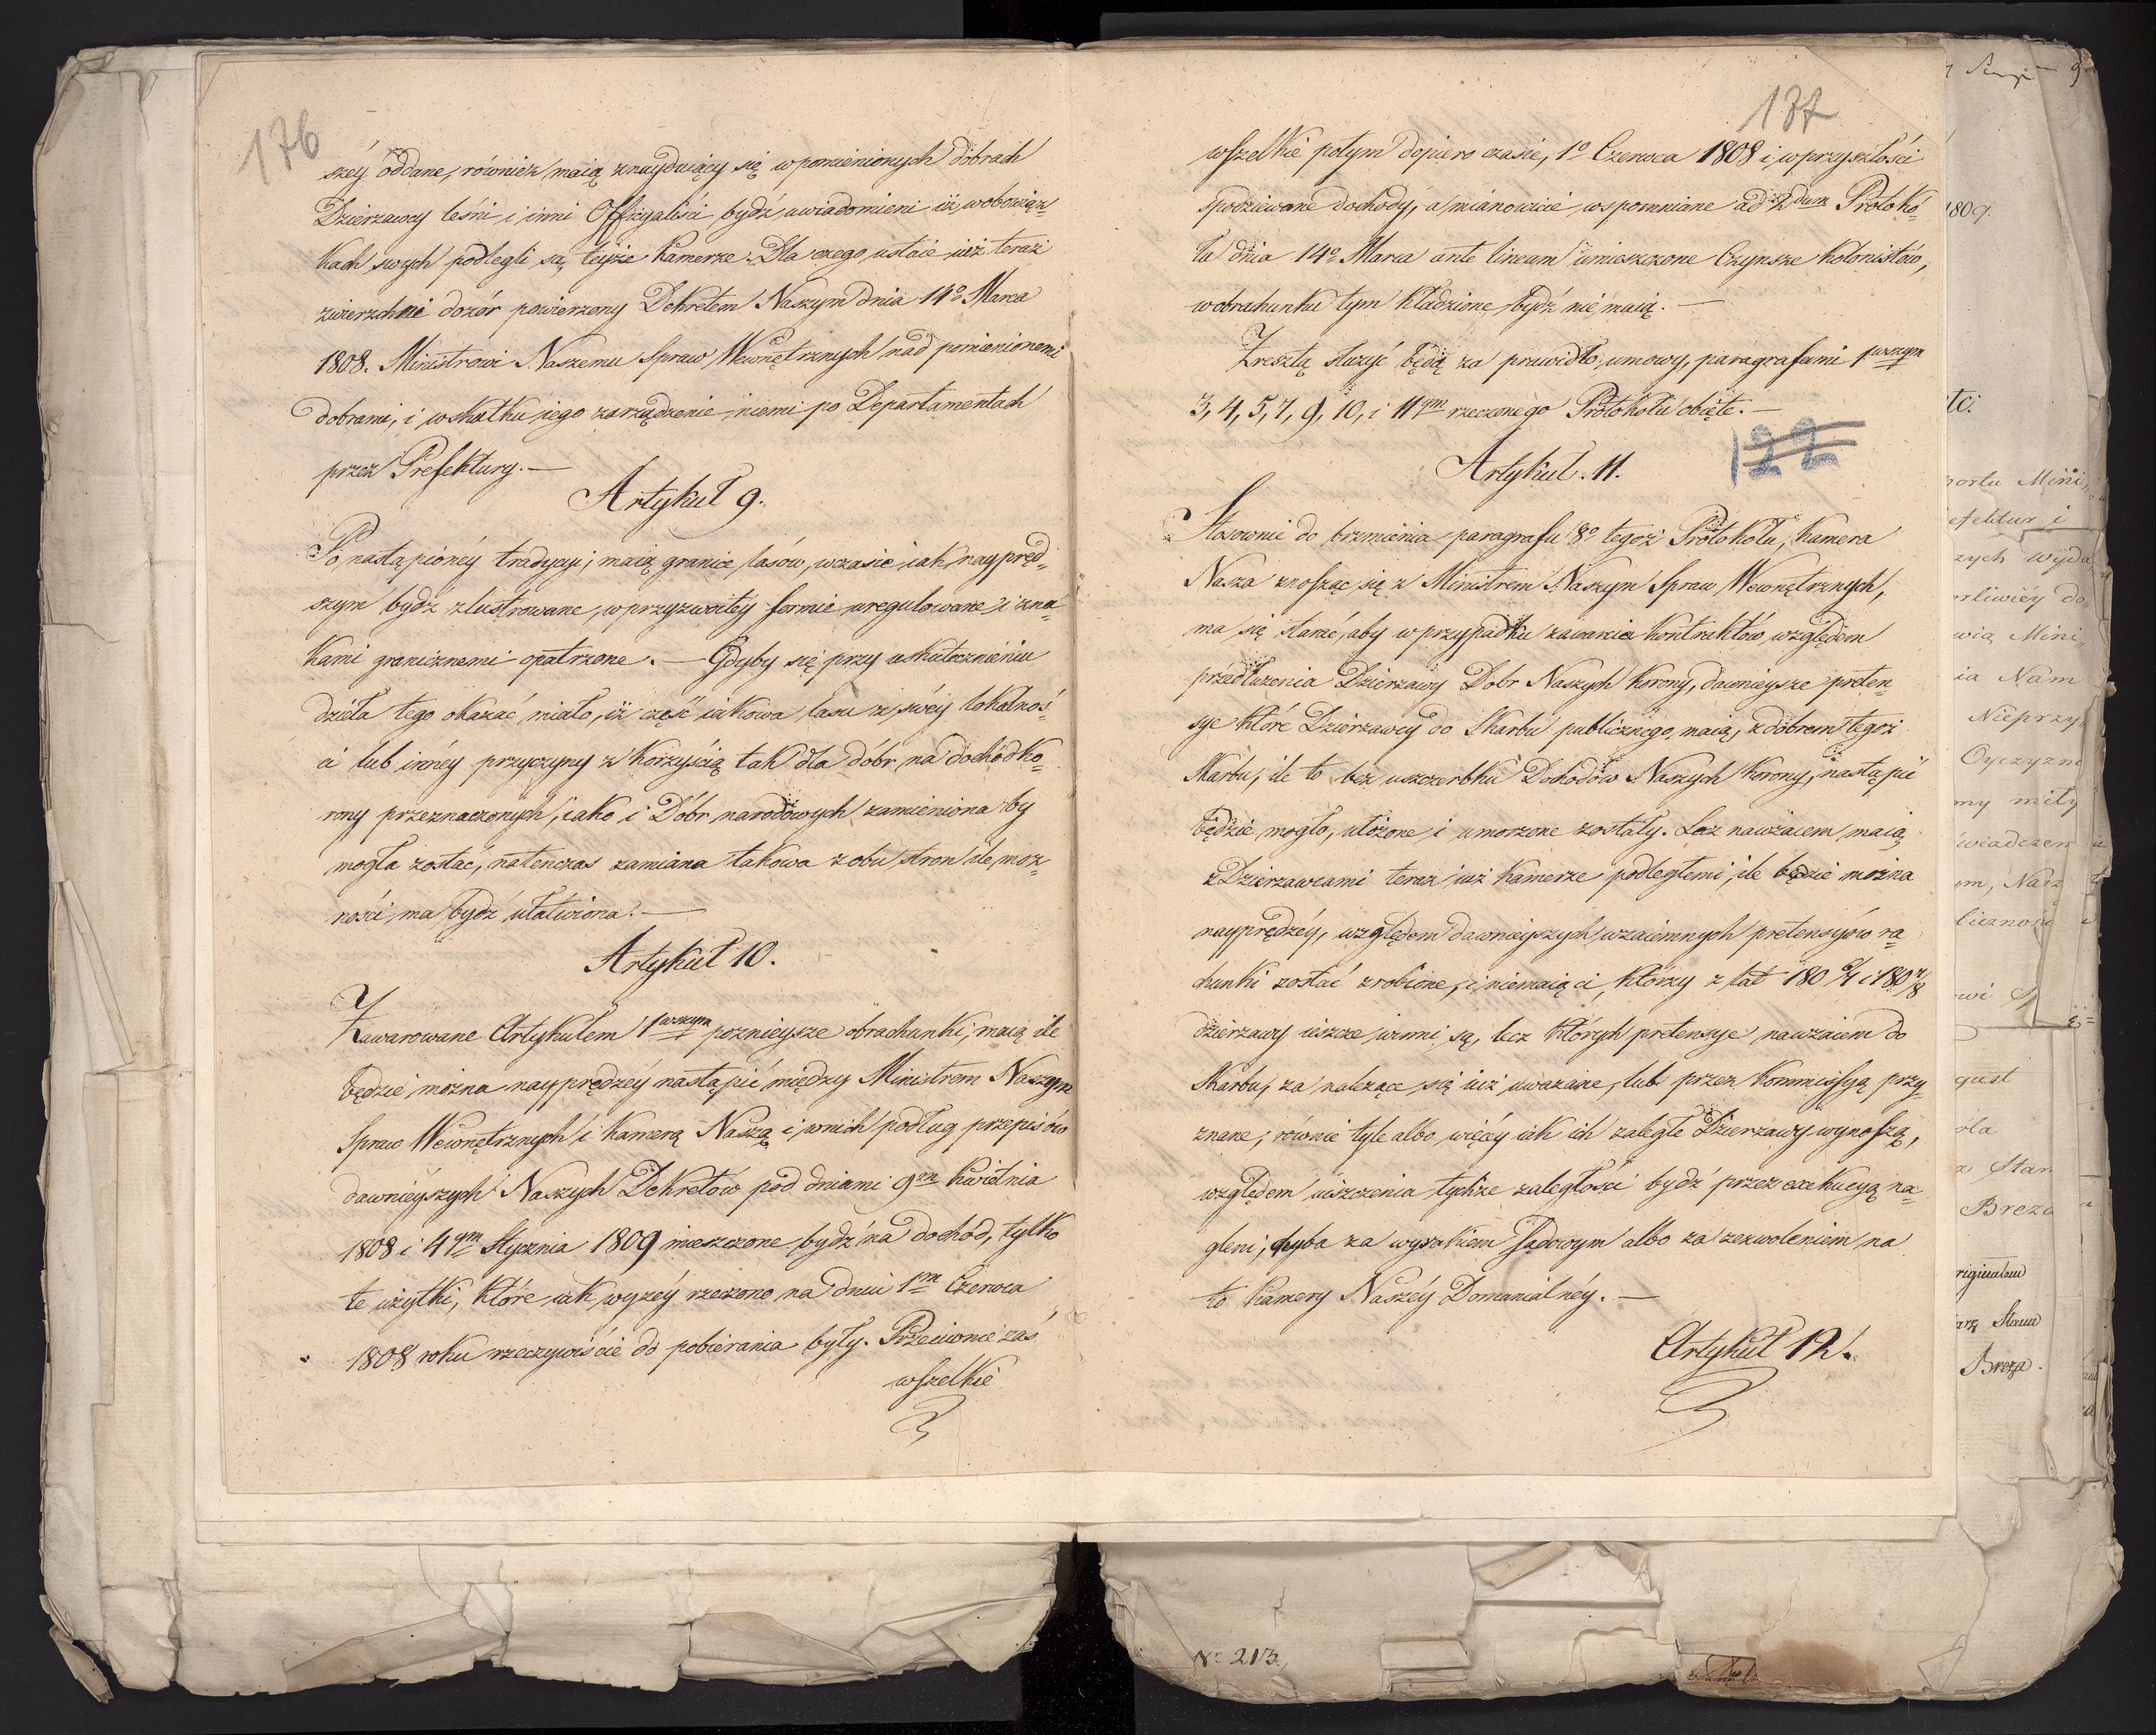 176
széy oddane, również maią znayduiący się w pomienionych dobrach
Dzierzawcy leśni i inni Officyaliści bydź uwiadomieni iż w obowiąz=
kach swych podlegli są teyże Kamerze. Dla czego ustaie iuż teraz
zwierzchni dozór powierzony Dekretem Naszym dnia 14º Marca
1808. Ministrowi Naszemu Spraw Wewnętrznych nad pomienionemi
dobrami, i w skutku iego zarządzenie niemi po Departamentach
przez Prefektury. —
Artykuł 9.
Po nastąpionéy tradycyi, maią granice lasów, w czasie iak naypręd=
szym bydź zlustrowane, w przyzwoitéy formie uregulowane i zna=
kami granicznemi opatrzone. — Gdyby się przy uskutecznieniu
dzieła tego okazać miało, iż część iakowa lasu ze swéy lokalnoś=
ci lub innéy przyczyny z korzyścią tak dla dóbr na dochód ko=
rony przeznaczonych, iako i Dóbr narodowych zamieniona by
mogła zostać, natenczas zamiana takowa z obu stron ile moz=
ności ma bydź ułatwiona. —
Artykuł 10.
Zawarowane Artykułem 1wszym poznieysze obrachunki, maią ile
będzie można nayprędzéy nastąpić między Ministrem Naszym
Spraw Wewnętrznych i Kamerą Naszą i w nich podług przepisów
dawnieyszych Naszych Dekretów pod dniami 9m Kwietnia
1808 i 4ym Stycznia 1809 mieszczone bydź na dochód, tylko
te użytki, które iak wyzéy rzeczono na dniu 1m Czerwca
1808 roku rzeczywiście do pobierania były. Przeciwnie zaś
wszelkie
137
wszelkie potym dopiero czasie, 1º Czerwca 1808 i w przyszłości
spodziewane dochody, a mianowicie wspomniane ad 2dum Protokó=
łu dnia 14º Marca ante lineam umieszczone Czynsze Kolonistów,
w obrachunku tym kładzione bydź nie maią. —
Zresztą służyć będą za prawidło umowy, paragrafami 1wszym
3, 4, 5, 7, 9, 10, i 11ym rzeczonego Protokółu obięte. —
122
Artykuł. 11.
Stosownie do brzmienia paragrafu 8º tegoż Protokołu, Kamera
Nasza znosząc się z Ministrem Naszym Spraw Wewnętrznych,
ma się starać, aby w przypadku zawarcia kontraktów względem
przedłużenia Dzierzawy Dobr Naszych Korony, dawnieysze preten=
sye które Dzierzawcy do Skarbu publicznego maią, z dobrem tegoż
Skarbu, ile to bez uszczerbku Dochodów Naszych Korony, nastąpić
będzie mogło, ułożone i umorzone zostały. Lecz nawzaiem maią
z Dzierzawcami teraz iuż Kamerze podległemi, ile będzie można
nayprędzéy, względem dawnieyszych wzaiemnych pretensyów ra=
chunki zostać zrobione, i niemaią ci, którzy z lat 180 6/7 i 180 7/8
dzierzawy ieszcze winni są, lecz których pretensye nawzaiem do
Skarbu, za należące się iuż uważane, lub przez Kommissyą przy=
znane, równie tyle albo więcéy iak ich zaległe Dzierzawy wynoszą,
względem uiszczenia tychże zaległości bydź przez exekucyą na=
gleni, chyba za wyrokiem Sądowym albo za zezwoleniem na
to Kamery Naszéy Domanialnéy. —
Artykuł 12.
1809.
etc:
portu Mini,,
efektur i
zych wyda
rliwiéy do,,
wią Mini,,
ia Nam
Nieprzy
Oyczyzn
my miły
wiadczen
ym, Nasz
liczność
gust
óla
z Stan
Breza
riginałem
arz Stanu
Breza.
Nº 213.